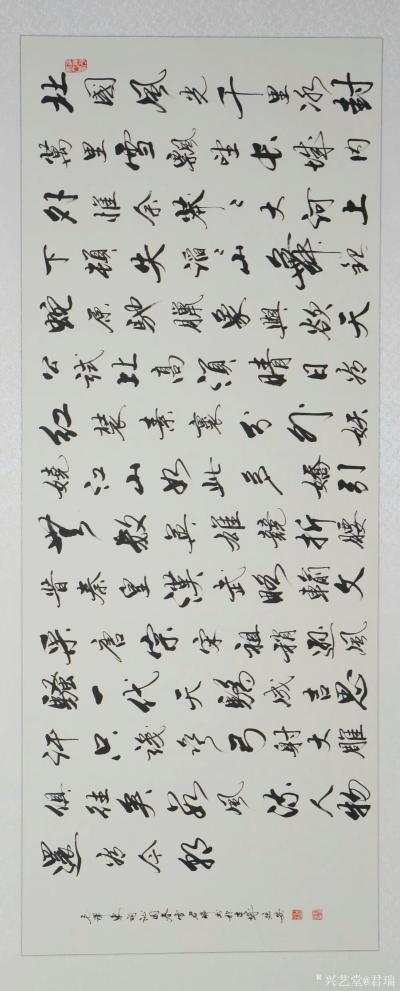 北國風光千里冰封
萬里雪飄望長城内
外惟余莽々大河上
下頓失滔々山舞銀
蛇原馳臘象與欲天
公試比高須晴日看
紅裝素裹分外妖
嬈江山如此多嬌引
無數英雄競折腰
昔秦皇漢武略輸文
采唐宗宋祖稍遜風
騷一代天驕成吉思
汗只識彎弓射大雕
俱往矣數風流人物
還看今朝
毛澤東詞沁園春雪
兴艺堂@君瑞